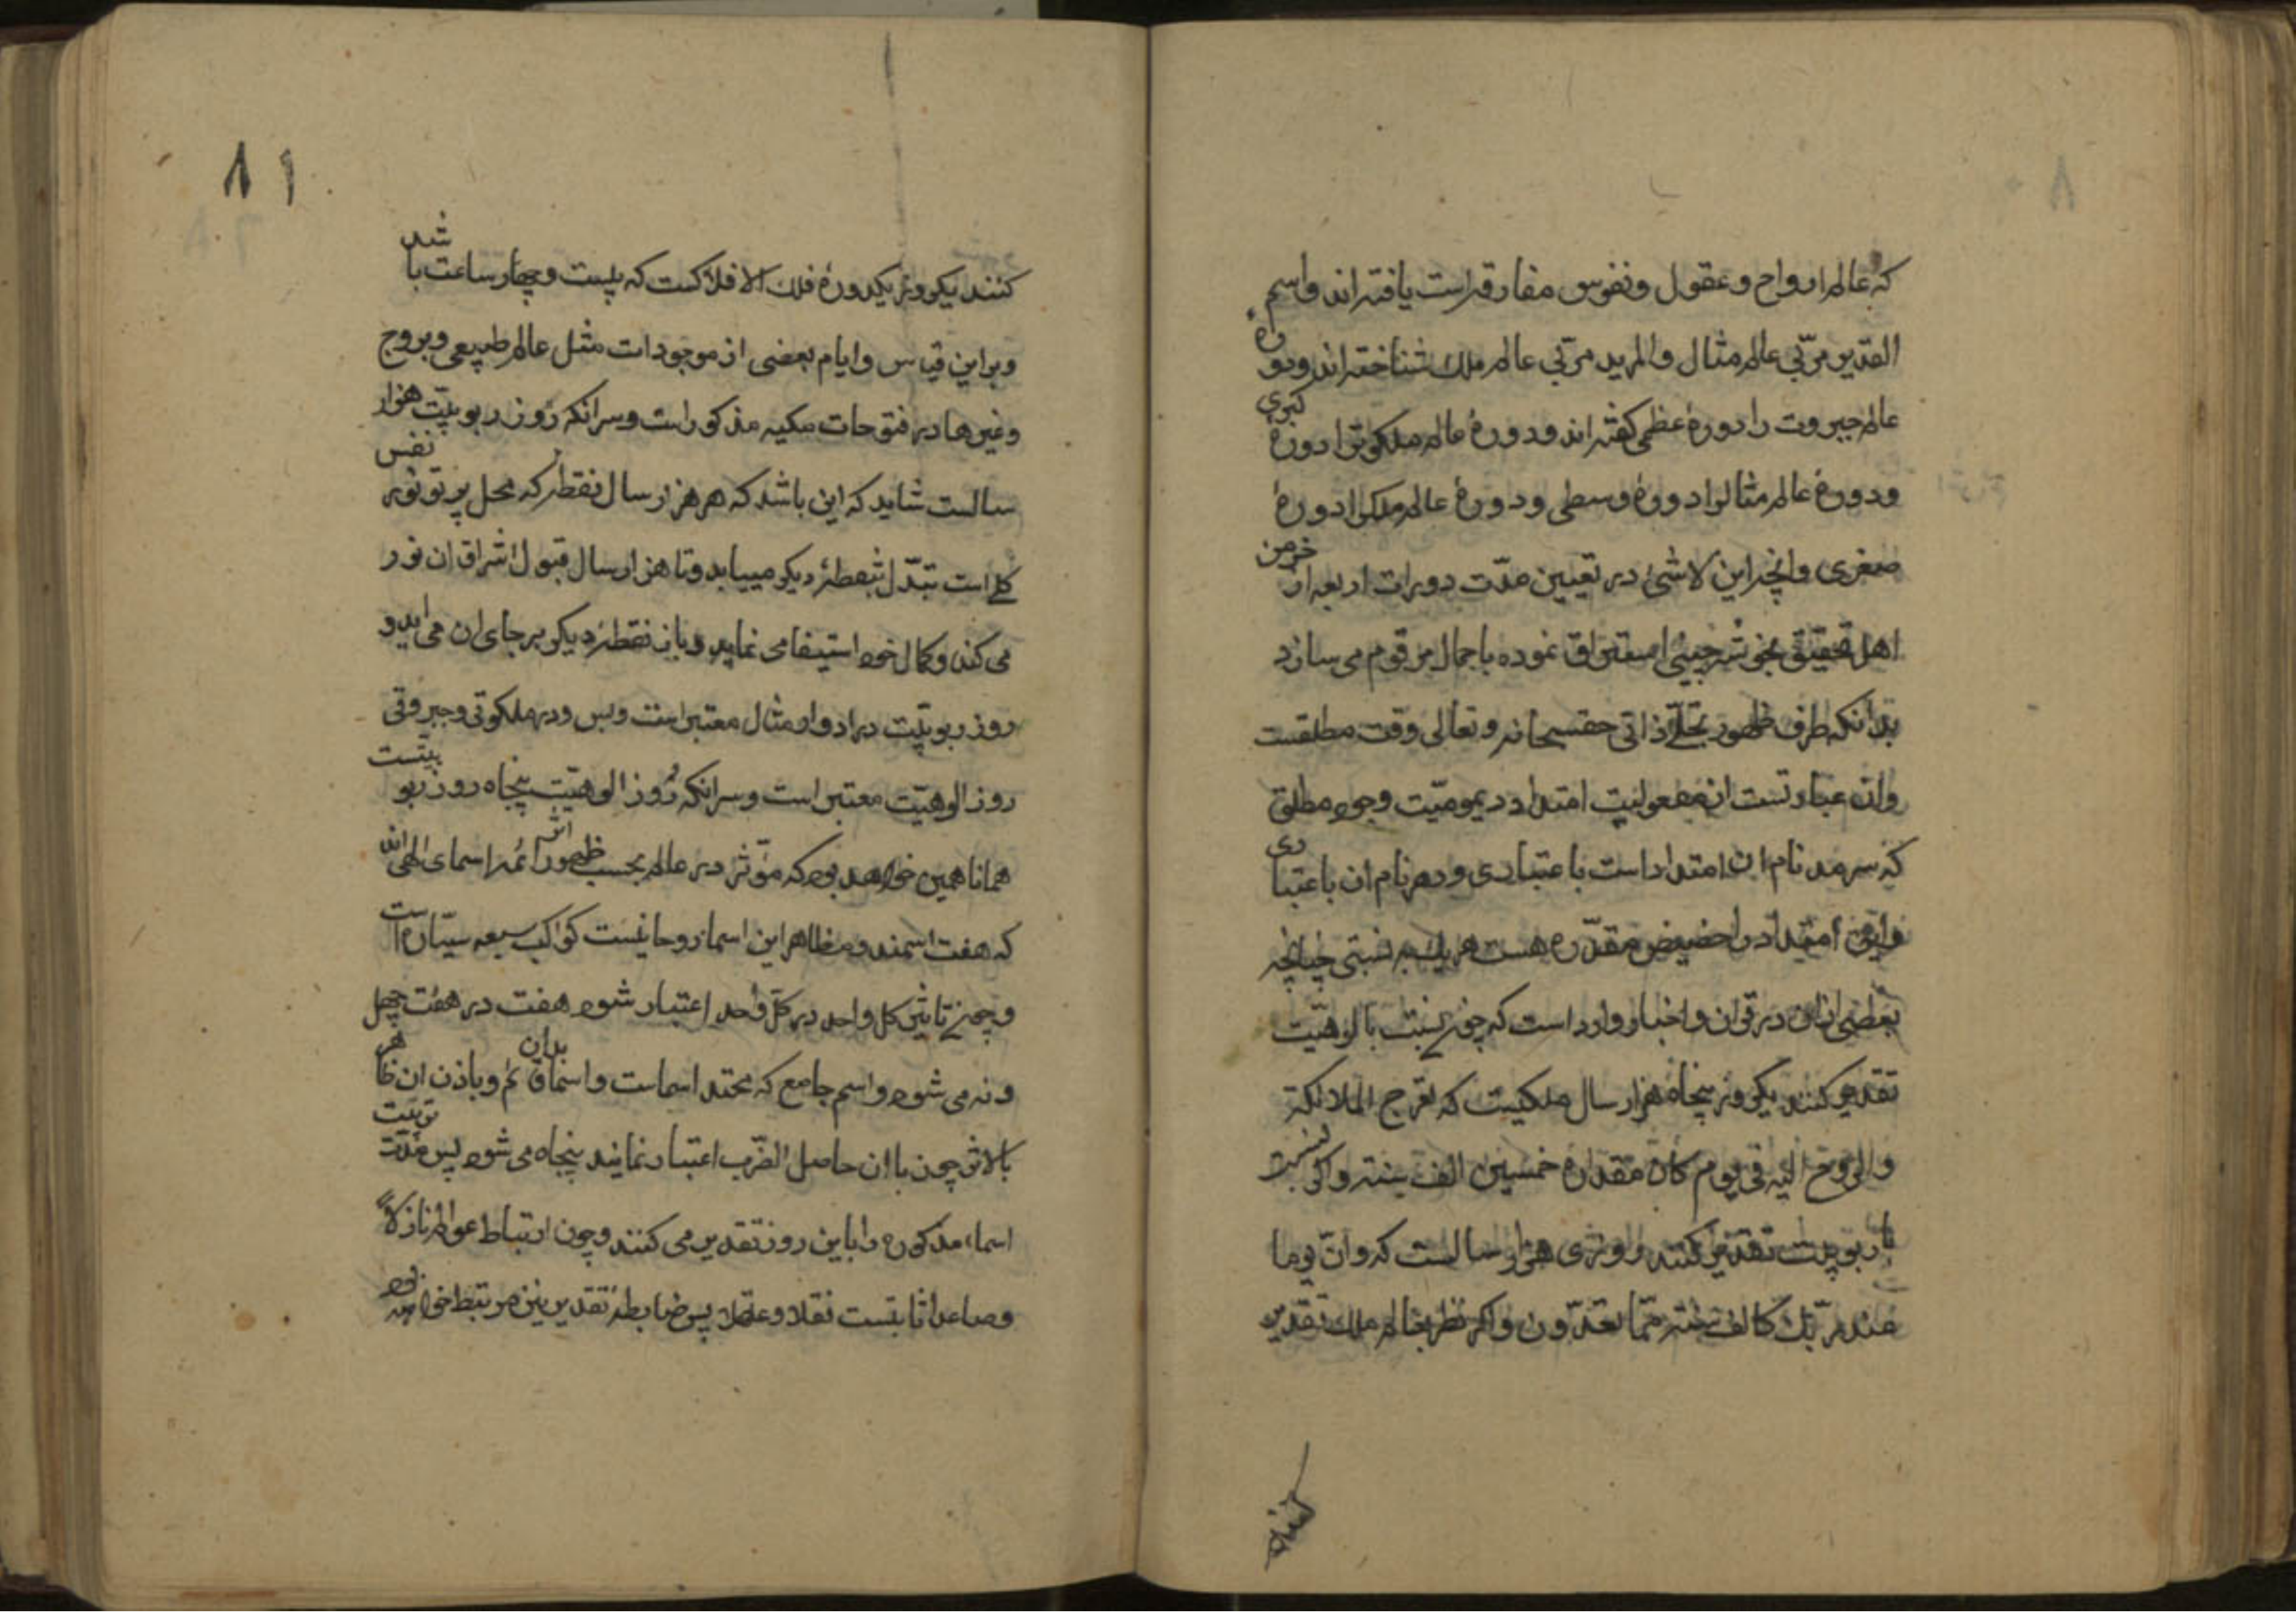 که عالم ارواح و عقول و نفوس مفارقه است یافته اند واسم
القدیر مربّی عالم مثال والمرید مربّی عالم ملک شناخته اند ودوره
عالم جبروت را دورهٔ عظمی کفته اند ودورهٔ عالم ملکوترا دورهٔ کبری
ودورهٔ عالم مثالرا دورهٔ وسطی ودورهٔ عالم ملکرا دورهٔ
صغری وانچه این لاشئ در تعیین مدّت دورات اربعه از خرمن
اهل تحقیق بخوشه چینی استراق نموده باجمال مرقوم می سازد
بدانکه ظرف ظهور تجلّئ ذاتی حق سبحانه وتعالی وقت مطلقست
وان عبارتست از معقولیت امتداد دیمومیّت وجود مطلق
که سرمد نام ان امتداد است باعتباری ودهر نام ان باعتباری
واین امتداد را حضیض مقدّره هست هریک به نسبتی چنانچه
بعضی ازان در قران واخبار وارد است که چون نسبت بالوهیّت
تقدیر کنند یکروز پنجاه هزار سال ملکیست که تعرج الملائکة
والروح الیه فی یوم کان مقداره خمسین الف سنة واکر نسبت
با ربوبیت تقدیر کنند روزی هزار سالست که وانّ یوما
عند ربّک کالف سنة ممّا تعدّون واکر نظر بعالم ملک تقدیر
کنند
۸۱
کنند یکروز یکدورهٔ فلک الافلاکست که بیست وچهار ساعت باشد
وبراین قیاس وایام بعضی از موجودات مثل عالم طبیعی وبروج
وغیرها در فتوحات مکیه مذکور است وسر انکه روز ربوبیّت هزار
سالست شاید که این باشد که هر هزار سال نقطه که محل پرتو نور نفس
کلّ است تبدّل بنقطهٔ دیکر مییابد وتا هزار سال قبول اشراق ان نور
می کند وکمال خود استیفا می نماید وباز نقطهٔ دیکر بر جای ان می اید و
روز ربوبیّت در ادوار مثال معتبر است وبس ودر ملکوتی وجبروتی
روز الوهیّت معتبر است وسر انکه روز الوهیّت پنجاه روز ربوبیتست
همانا همین خواهد بود که مؤثر در عالم بحسب ظهور اثر ائمه اسمای الهی اند
که هفت اسمند ومظاهر این اسما روحانیست کواکب سبعه سیّاره است
وچون تاثیر کل واحد در کلّ واحد اعتبار شود هفت در هفت چهل
ونه می شود واسم جامع که محتد اسماست واسما بدان قائم وباذن ان ظاهر
بالاثر چون باان حاصل الضّرب اعتبار نمایند پنجاه می شود پس مدّت تربیت
اسماء مذکوره را باین روز تقدیر می کنند وچون ارتباط عوالم نازلاً
وصاعدا ثابتست نقلا وعقلا پس ضابطهٔ تقدیر نیز مرتبط خواهد بود